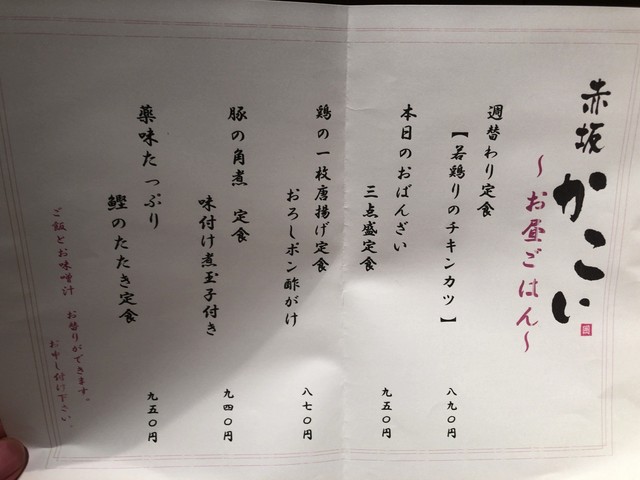 赤坂 かこい
～お昼ごはん～
週替わり定食
【若鶏りのチキンカツ】
八九〇円
本日のおばんざい
三点盛定食
九五〇円
鶏の一枚唐揚げ定食
おろしポン酢がけ
八七〇円
豚の角煮 定食
味付け煮玉子付き
九四〇円
薬味たっぷり
鰹のたたき定食
九五〇円
ご飯とお味噌汁 お替りができます。
お申し付け下さい。